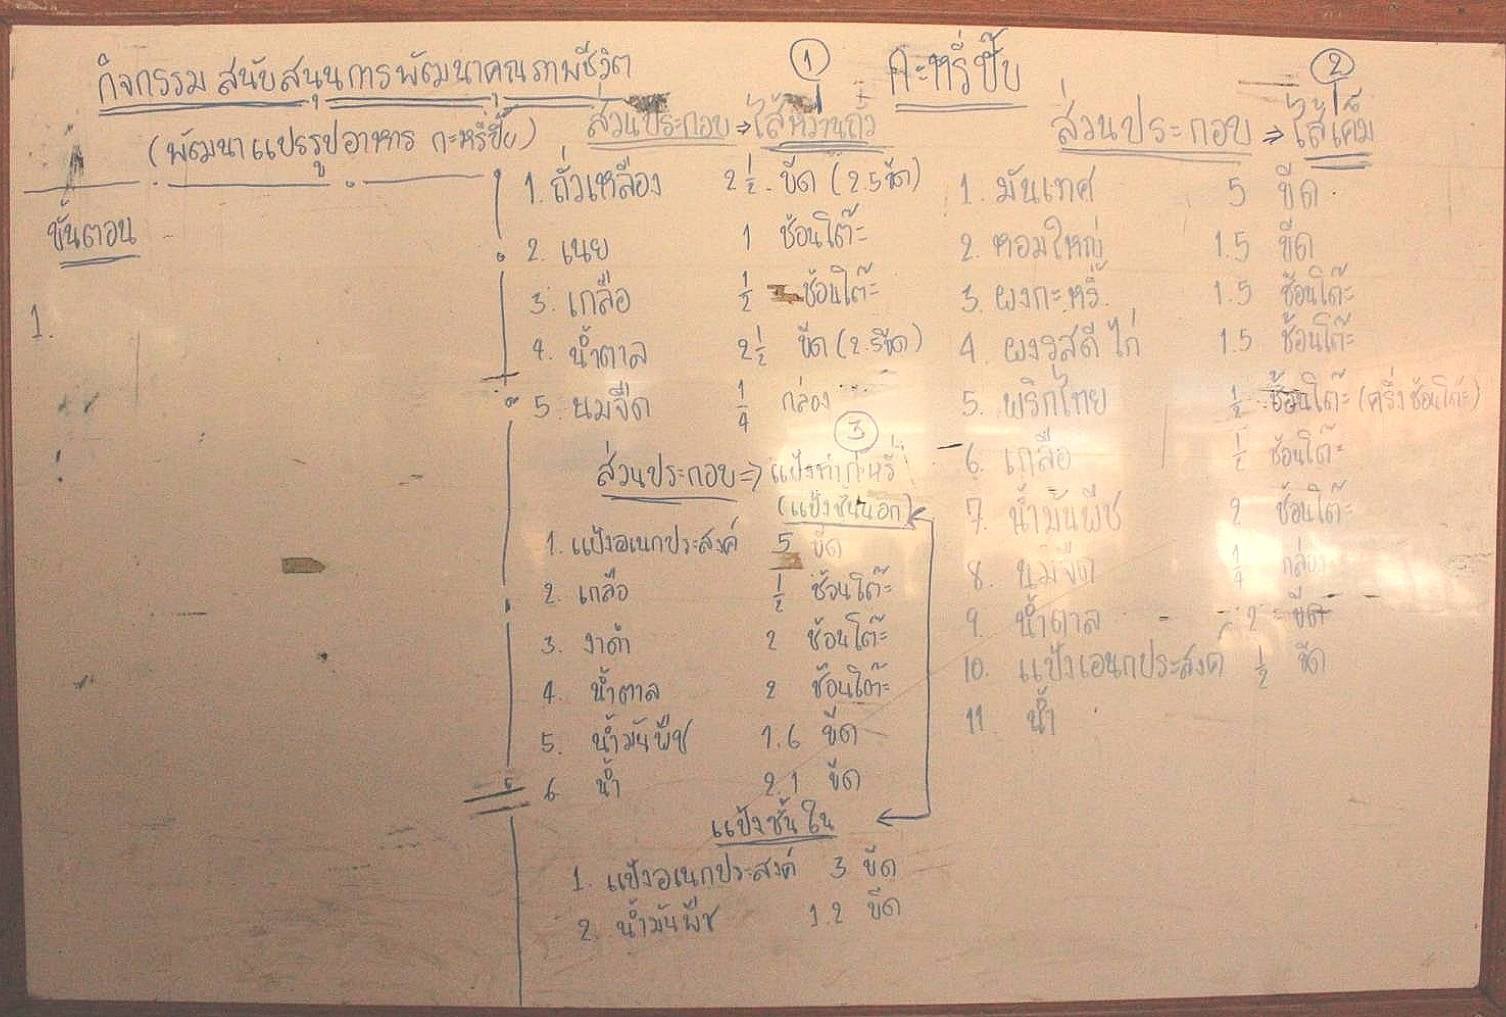 กิจกรรม สนับสนุนการพัฒนาคุณภาพชีวิต
(พัฒนาแปรรูปอาหาร กะหรี่ปั๊บ)
ขั้นตอน
1.
กะหรี่ปั๊บ
1
ส่วนประกอบ ⇒ ไส้หวานถั่ว
1. ถั่วเหลือง 2 1/2 ขีด (2.5 ขีด)
2. เนย 1 ช้อนโต๊ะ
3. เกลือ 1/2 ช้อนโต๊ะ
4. น้ำตาล 2 1/2 ขีด (2.5 ขีด)
5. นมจืด 1/4 กล่อง
3
ส่วนประกอบ ⇒ แป้งทำกะหรี่
(แป้งชั้นนอก)
1. แป้งอเนกประสงค์ 5 ขีด
2. เกลือ 1/2 ช้อนโต๊ะ
3. งาดำ 2 ช้อนโต๊ะ
4. น้ำตาล 2 ช้อนโต๊ะ
5. น้ำมันพืช 1.6 ขีด
6 น้ำ 2.1 ขีด
แป้งชั้นใน
1. แป้งอเนกประสงค์ 3 ขีด
2. น้ำมันพืช 1.2 ขีด
2
ส่วนประกอบ ⇒ ไส้เค็ม
1. มันเทศ 5 ขีด
2. หอมใหญ่ 1.5 ขีด
3. ผงกะหรี่ 1.5 ช้อนโต๊ะ
4. ผงรสดี ไก่ 1.5 ช้อนโต๊ะ
5. พริกไทย 1/2 ช้อนโต๊ะ (ครึ่งช้อนโต๊ะ)
6. เกลือ 1/2 ช้อนโต๊ะ
7. น้ำมันพืช 2 ช้อนโต๊ะ
8. นมจืด 1/4 กล่อง
9. น้ำตาล 2 ขีด
10. แป้งเอนกประสงค์ 1/2 ขีด
11 น้ำ